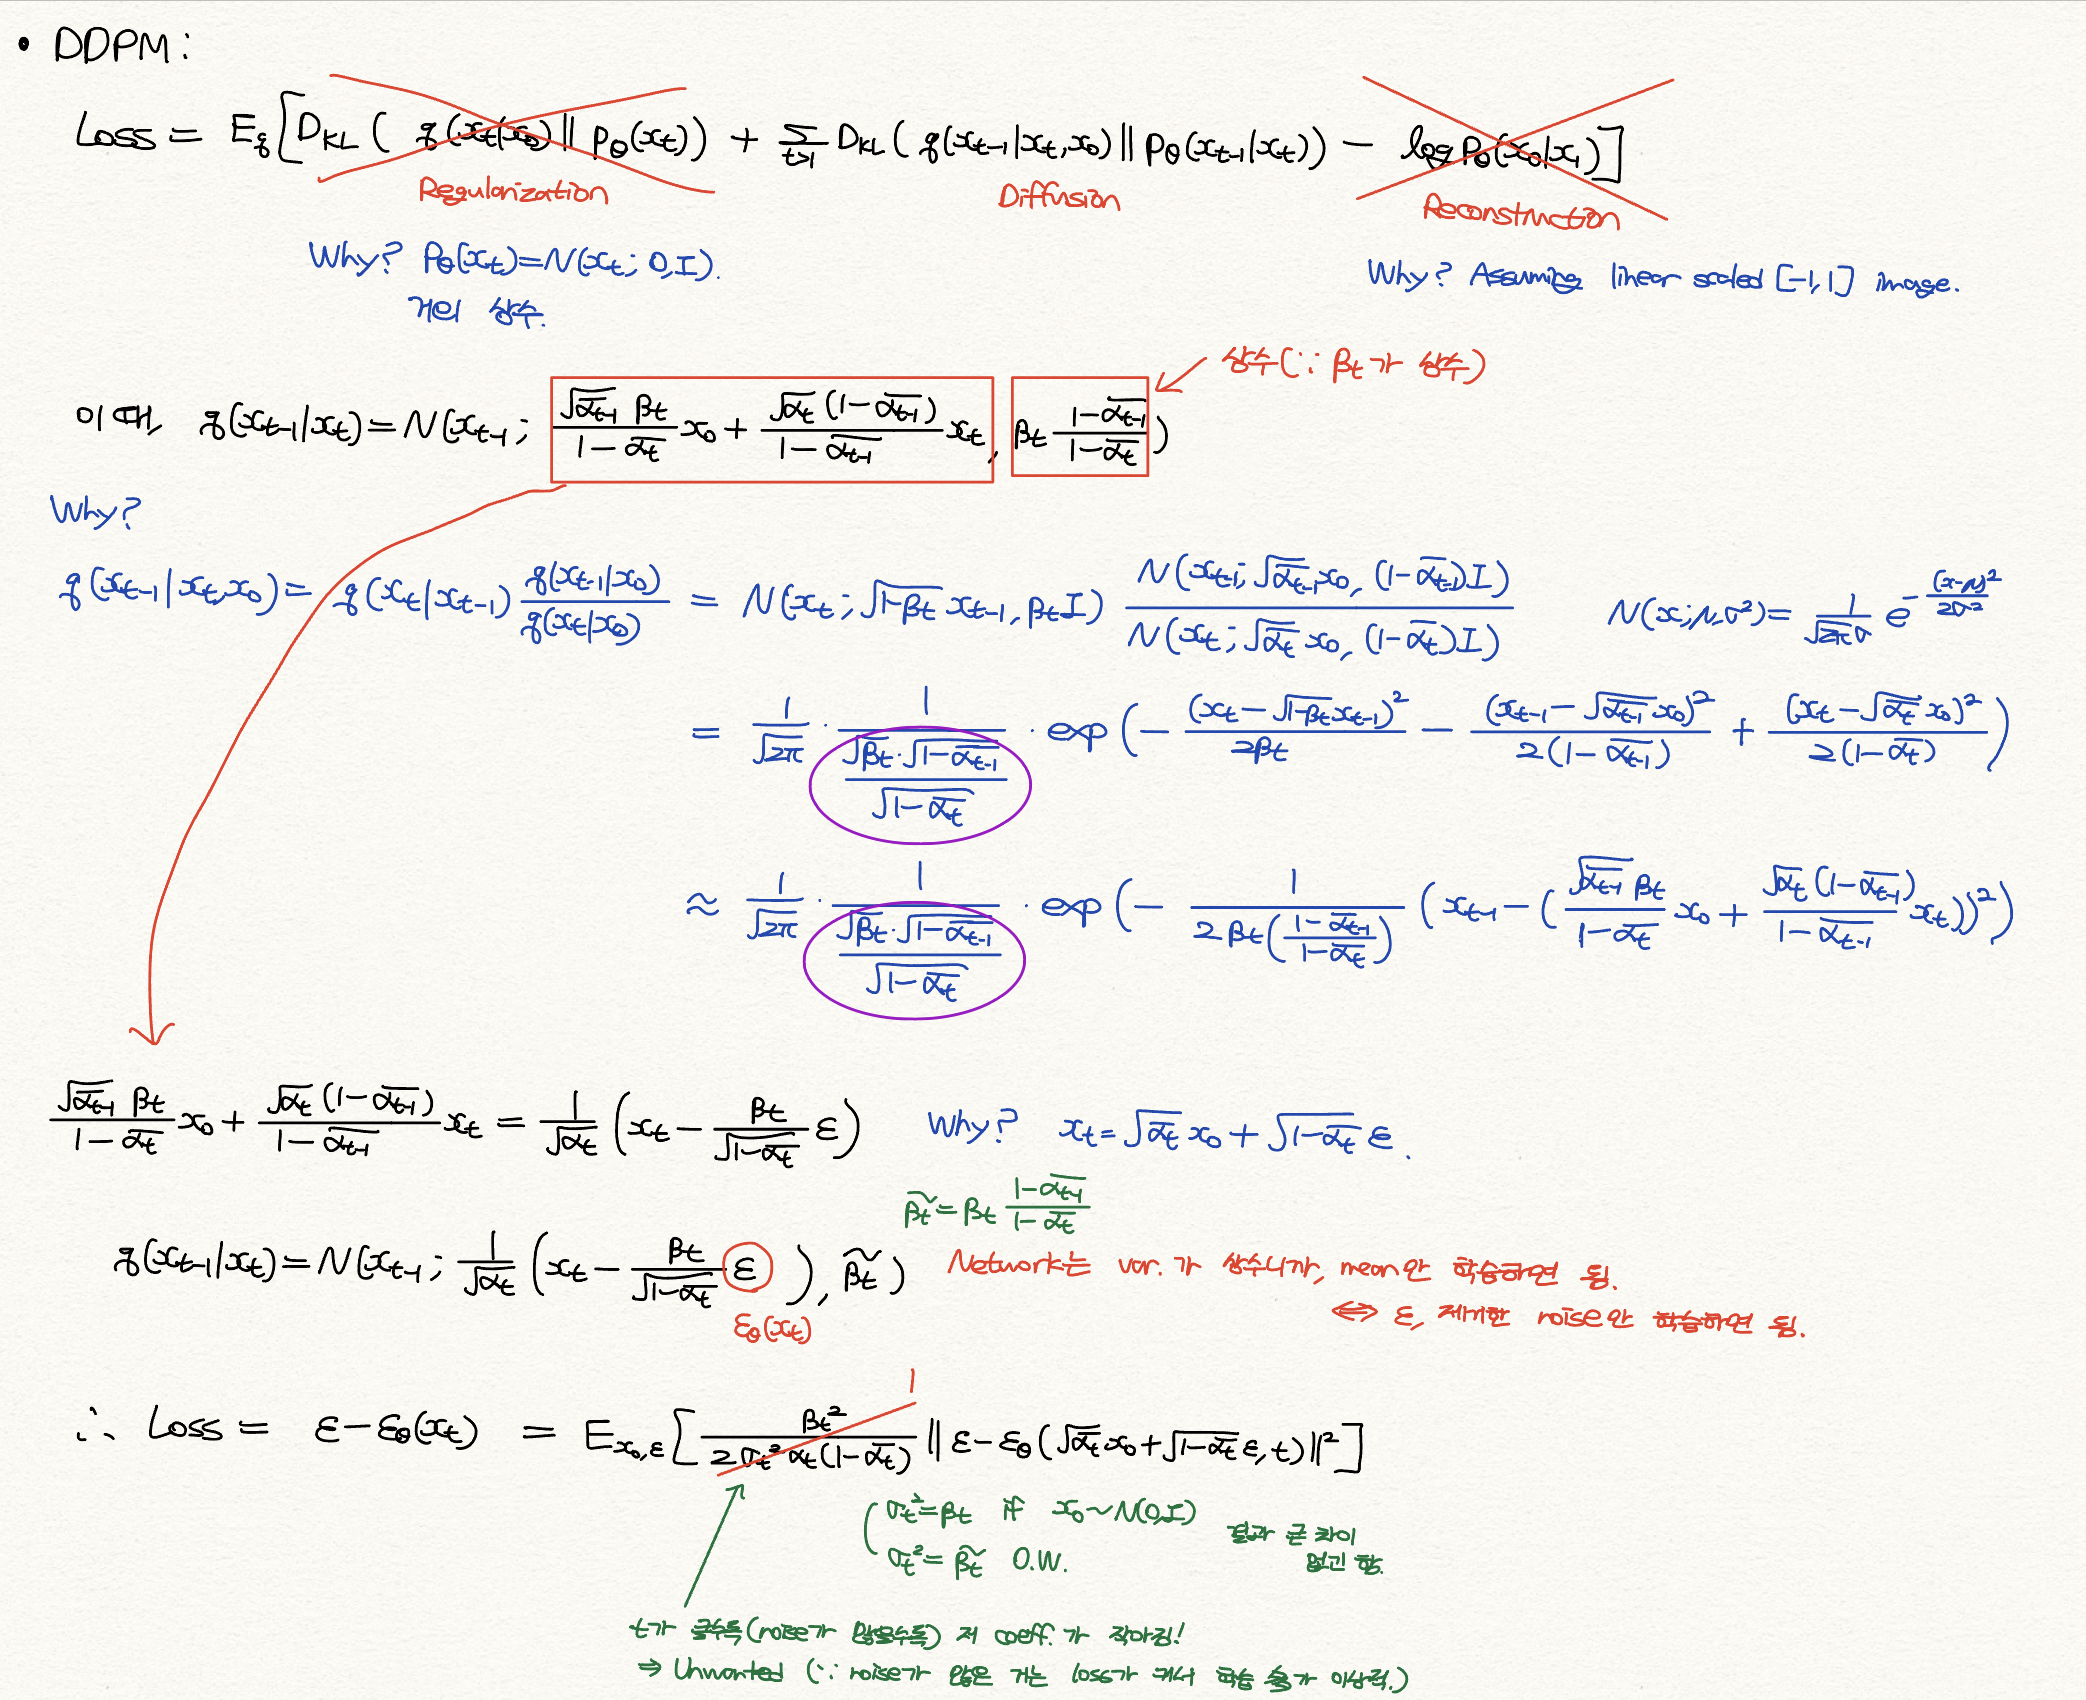 • DDPM:
Loss = E_q[D_KL( q(x_t|x_0) || p_θ(x_t)) + Σ_{t>1} D_KL( q(x_{t-1}|x_t,x_0) || p_θ(x_{t-1}|x_t)) − log p_θ(x_0|x_1)]
Regularization Diffusion Reconstruction
Why? P_θ(x_t)=N(x_t; 0,I).
거의 상수.
Why? Assuming linear scaled [-1,1] image.
상수(∵ β_t가 상수)
이 때, q(x_{t-1}|x_t) = N(x_{t-1}; \frac{\sqrt{\overline{α_{t-1}}} β_t}{1-\overline{α_t}} x_0 + \frac{\sqrt{α_t}(1-\overline{α_{t-1}})}{1-\overline{α_{t-1}}} x_t, β_t \frac{1-\overline{α_{t-1}}}{1-\overline{α_t}})
Why?
q(x_{t-1}|x_t,x_0) = q(x_t|x_{t-1}) \frac{q(x_{t-1}|x_0)}{q(x_t|x_0)} = N(x_t; \sqrt{1-β_t} x_{t-1}, β_t I) \frac{N(x_{t-1}; \sqrt{\overline{α_{t-1}}} x_0, (1-\overline{α_{t-1}})I)}{N(x_t; \sqrt{\overline{α_t}} x_0, (1-\overline{α_t})I)} N(x;μ,σ²) = \frac{1}{\sqrt{2π}σ} e^{-\frac{(x-μ)^2}{2σ^2}}
= \frac{1}{\sqrt{2π}} · \frac{1}{\frac{\sqrt{β_t}·\sqrt{1-\overline{α_{t-1}}}}{\sqrt{1-\overline{α_t}}}} · exp(− \frac{(x_t-\sqrt{1-β_t}x_{t-1})^2}{2β_t} − \frac{(x_{t-1}-\sqrt{\overline{α_{t-1}}}x_0)^2}{2(1-\overline{α_{t-1}})} + \frac{(x_t-\sqrt{\overline{α_t}}x_0)^2}{2(1-\overline{α_t})})
≈ \frac{1}{\sqrt{2π}} · \frac{1}{\frac{\sqrt{β_t}·\sqrt{1-\overline{α_{t-1}}}}{\sqrt{1-\overline{α_t}}}} · exp(− \frac{1}{2β_t(\frac{1-\overline{α_{t-1}}}{1-\overline{α_t}})} (x_{t-1} − (\frac{\sqrt{\overline{α_{t-1}}} β_t}{1-\overline{α_t}} x_0 + \frac{\sqrt{α_t}(1-\overline{α_{t-1}})}{1-\overline{α_{t-1}}} x_t))^2)
\frac{\sqrt{\overline{α_{t-1}}} β_t}{1-\overline{α_t}} x_0 + \frac{\sqrt{α_t}(1-\overline{α_{t-1}})}{1-\overline{α_{t-1}}} x_t = \frac{1}{\sqrt{α_t}} (x_t − \frac{β_t}{\sqrt{1-\overline{α_t}}} ε) Why? x_t = \sqrt{\overline{α_t}} x_0 + \sqrt{1-\overline{α_t}} ε.
\tilde{β_t} = β_t \frac{1-\overline{α_{t-1}}}{1-\overline{α_t}}
q(x_{t-1}|x_t) = N(x_{t-1}; \frac{1}{\sqrt{α_t}} (x_t − \frac{β_t}{\sqrt{1-\overline{α_t}}} ε), \tilde{β_t}) Network는 var.가 상수니까, mean만 학습하면 됨.
ε_θ(x_t) ⟺ ε, 제거한 noise만 학습하면 됨.
1
∴ Loss = ε−ε_θ(x_t) = E_{x_0,ε}[\frac{β_t^2}{2σ_t^2 α_t(1-\overline{α_t})} ||ε−ε_θ(\sqrt{\overline{α_t}}x_0+\sqrt{1-\overline{α_t}}ε, t)||^2]
σ_t^2=β_t if x_0~N(0,I) 결과 큰 차이
σ_t^2=\tilde{β_t} O.W. 없긴 함.
t가 클수록(noise가 많을수록) 저 coeff.가 작아짐!
⇒ Unwanted (∵ noise가 많은 거는 loss가 커서 학습 쪽가 이상적.)